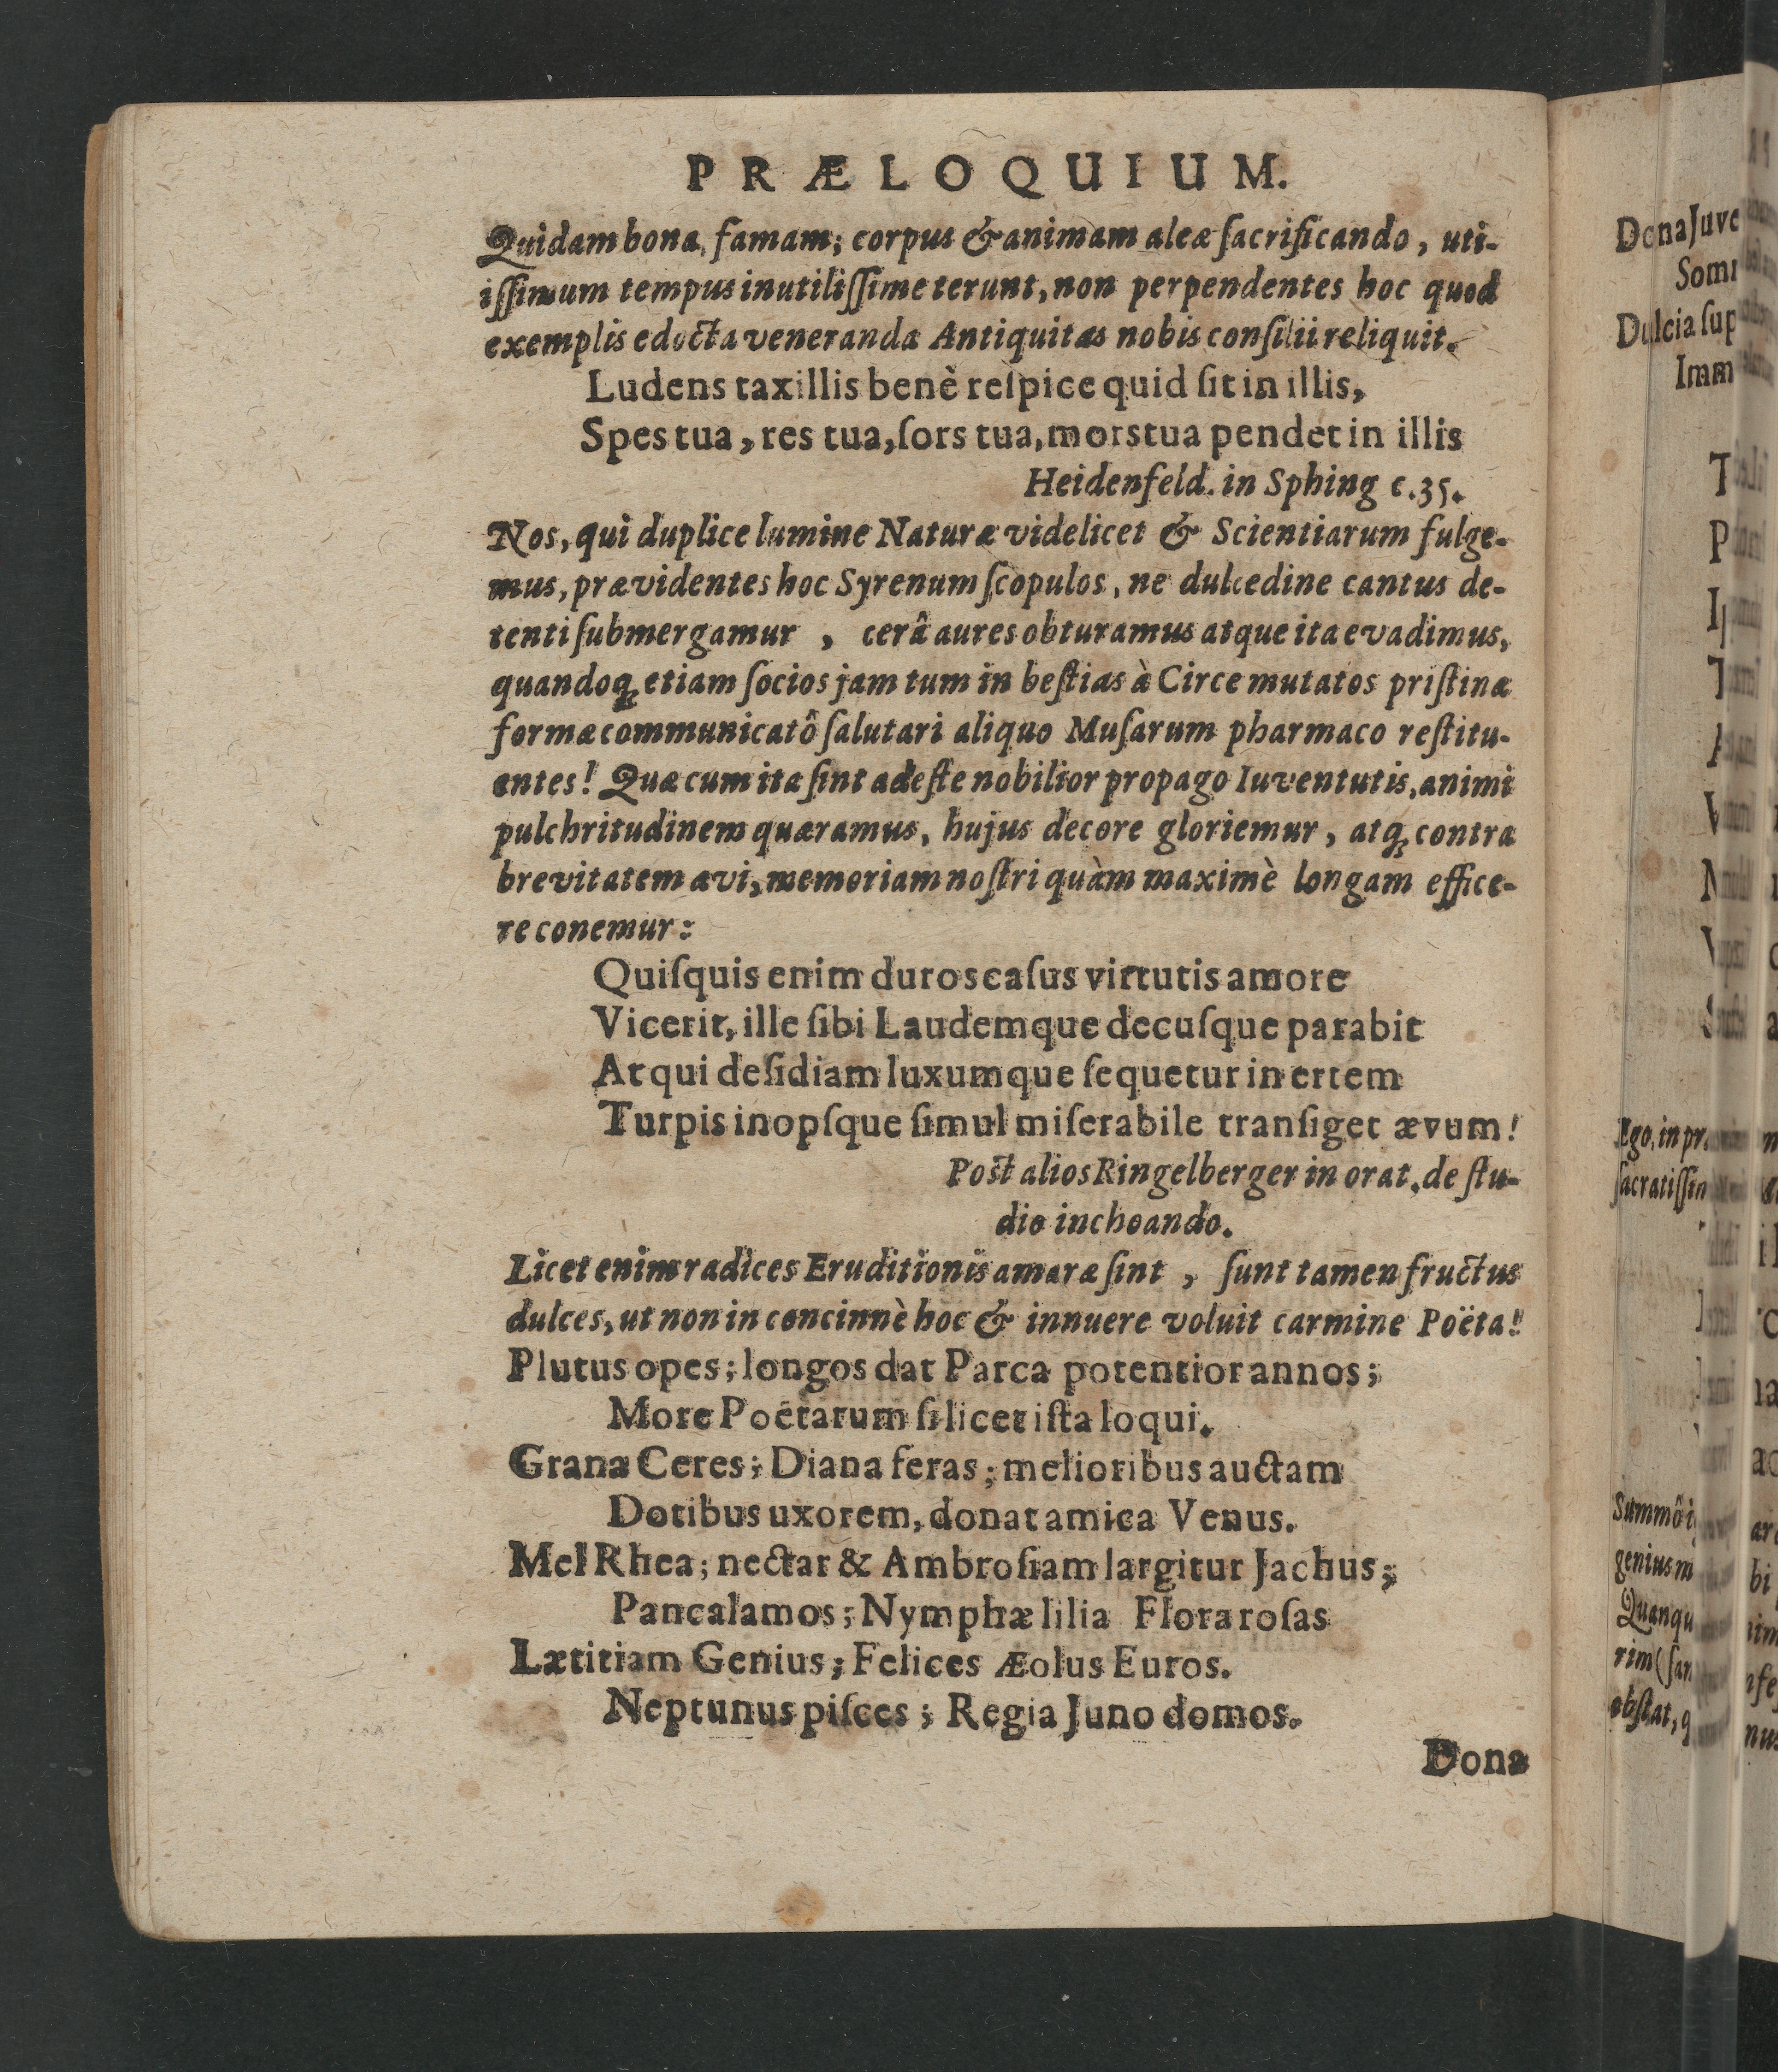 PRÆLOQUIUM.
Quidam bona, famam; corpus & animam aleæ ſacrificando, uti-
iſſimum tempus inutiliſſime terunt, non perpendentes hoc quod
exemplis edocta veneranda Antiquitas nobis conſilii reliquit.
Ludens taxillis benè reſpice quid ſit in illis,
Spes tua, res tua, ſors tua, mors tua pendet in illis
Heidenfeld. in Sphing c.35.
Nos, qui duplice lumine Naturæ videlicet & Scientiarum fulge-
mus, prævidentes hoc Syrenum ſcopulos, ne dulcedine cantus de-
tenti ſubmergamur, cerâ aures obturamus atque ita evadimus,
quandoq; etiam ſocios jam tum in beſtias à Circe mutatos priſtinæ
formæ communicatô ſalutari aliquo Muſarum pharmaco reſtitu-
entes! Quæ cum ita ſint adeſte nobilior propago Iuventutis, animi
pulchritudinem quæramus, hujus decore gloriemur, atq; contra
brevitatem ævi, memoriam noſtri quàm maximè longam effice-
re conemur:
Quiſquis enim duros caſus virtutis amore
Vicerit, ille ſibi Laudemque decuſque parabit
At qui deſidiam luxumque ſequetur inertem
Turpis inopſque ſimul miſerabile tranſiget ævum!
Poſt alios Ringelberger in orat. de ſtu-
dio inchoando.
Licet enim radices Eruditionis amaræ ſint, ſunt tamen fructus
dulces, ut non in concinnè hoc & innuere voluit carmine Poëta!
Plutus opes; longos dat Parca potentior annos;
More Poëtarum ſi licet iſta loqui.
Grana Ceres; Diana feras; melioribus auctam
Dotibus uxorem, donat amica Venus.
Mel Rhea; nectar & Ambroſiam largitur Jachus;
Pan calamos; Nymphæ lilia Flora roſas
Lætitiam Genius; Felices Æolus Euros.
Neptunus piſces; Regia Juno domos.
Dona